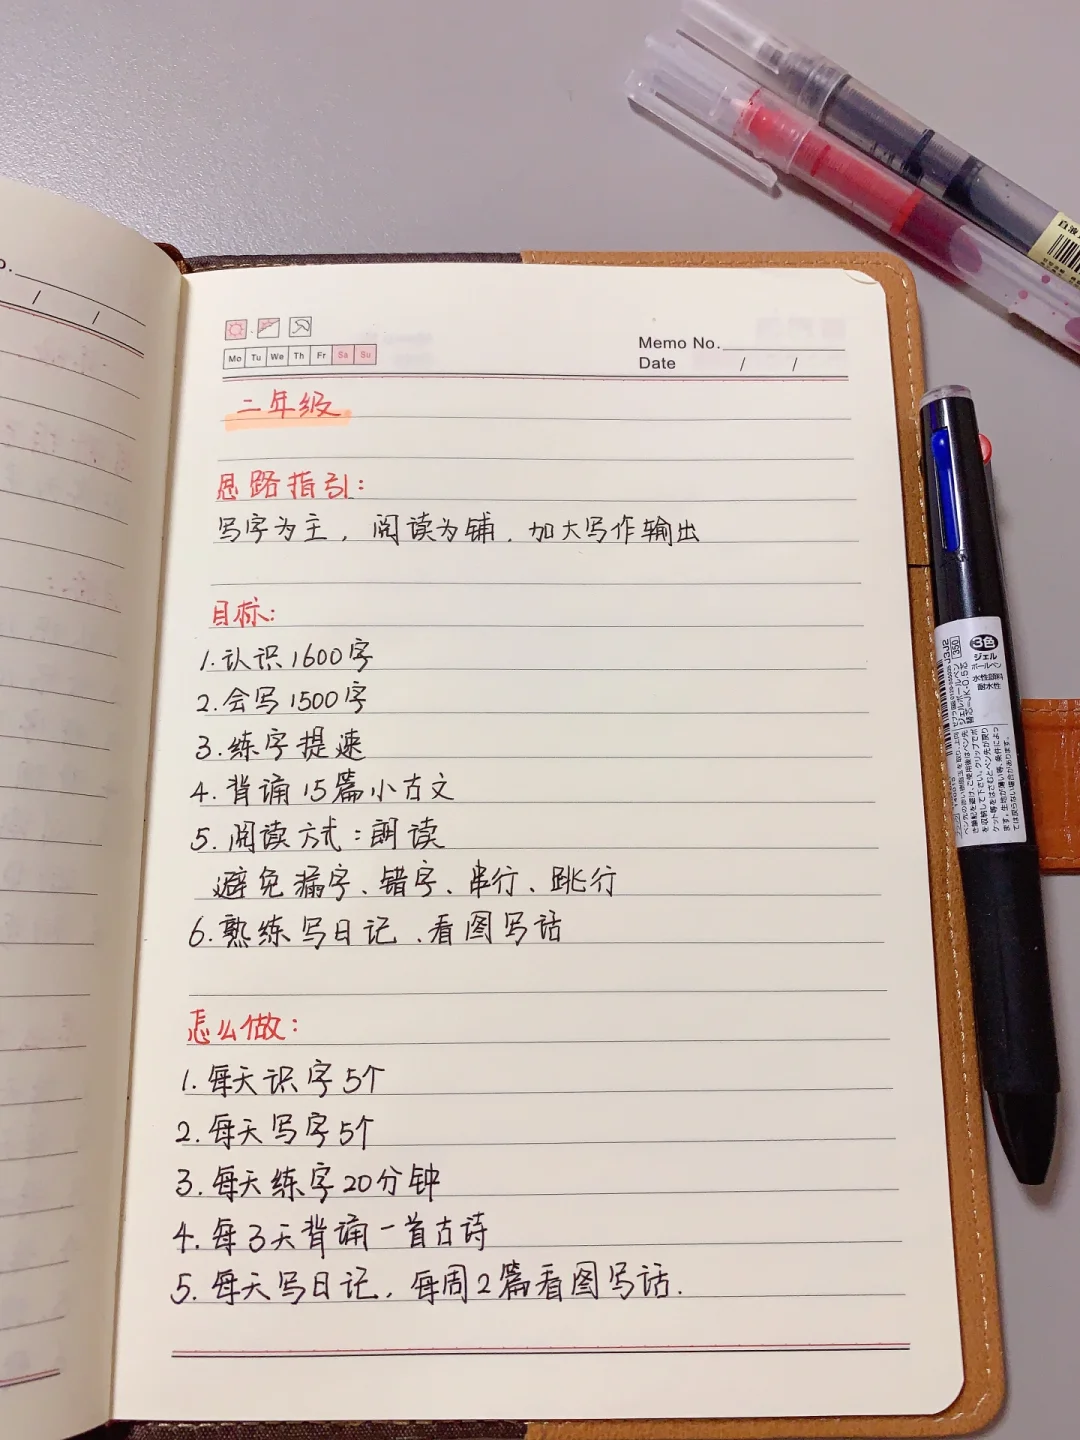 Memo No.
Mo Tu We Th Fr Sa Su
Date / /
二年级
思路指引:
写字为主,阅读为铺.加大写作输出
目标:
1.认识1600字
2.会写1500字
3.练字提速
4.背诵15篇小古文
5.阅读方式:朗读
避免漏字、错字、串行、跳行
6.熟练写日记、看图写话
怎么做:
1.每天识字5个
2.每天写字5个
3.每天练字20分钟
4.每3天背诵一首古诗
5.每天写日记,每周2篇看图写话.
3色
ジェル
ボールペン
水性顔料
耐水性
J3J2
350